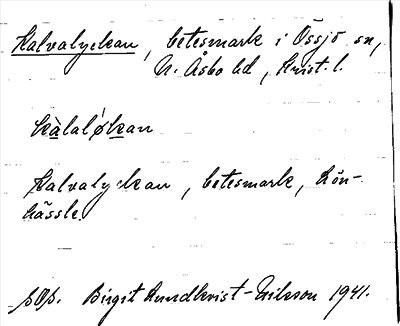 Kalvalyckan, betesmark i Össjö sn,
N. Åsbo hd, Krist. l.
kàlalø̀kan
Kalvalyckan, betesmark, Lön-
hässle.
Birgit Lundkvist-Nilsson 1941.